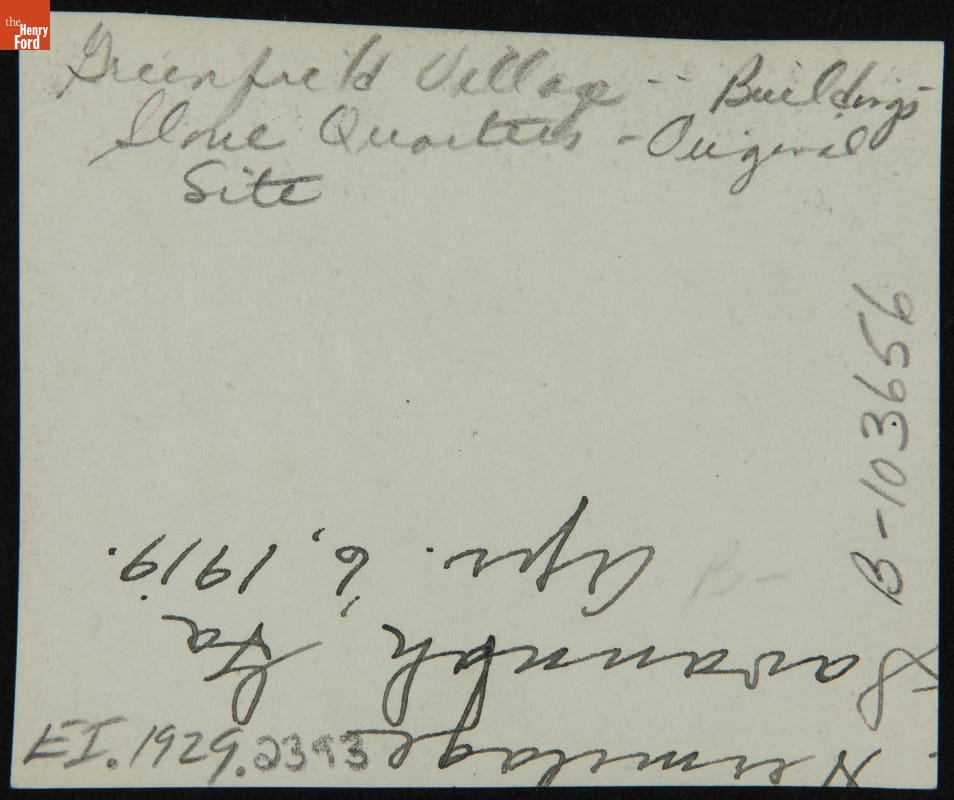 the
Henry
Ford
Greenfield Village -- Buildings
Slave Quarters - Original
Site
B-103656
B-
Hermitage
Savannah, Ga.
Apr. 6, 1919.
EI.1929.2393